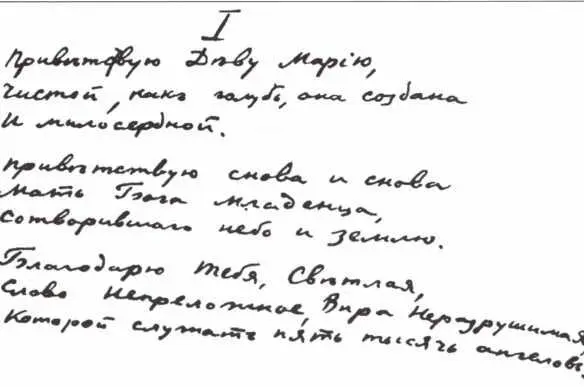 I
Привѣтствую Дѣву Марію,
Чистой, какъ голубь, она создана
И милосердной.
Привѣтствую снова и снова
Мать Бога младенца,
Сотворившаго небо и землю.
Благодарю тебя, Свѣтлая,
Слово Непреложное, Вѣра Неразрушимая,
Которой служатъ пять тысячъ ангеловъ.